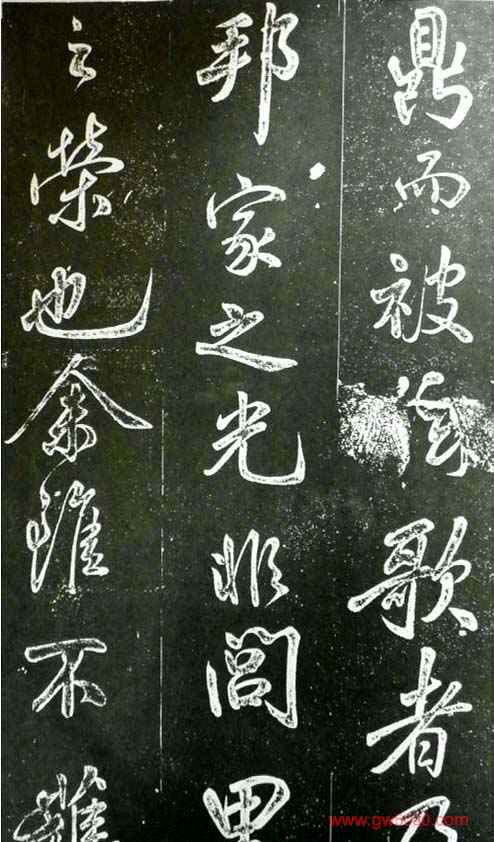 鼎而被絃歌者乃
邦家之光非閭里
之榮也余雖不獲